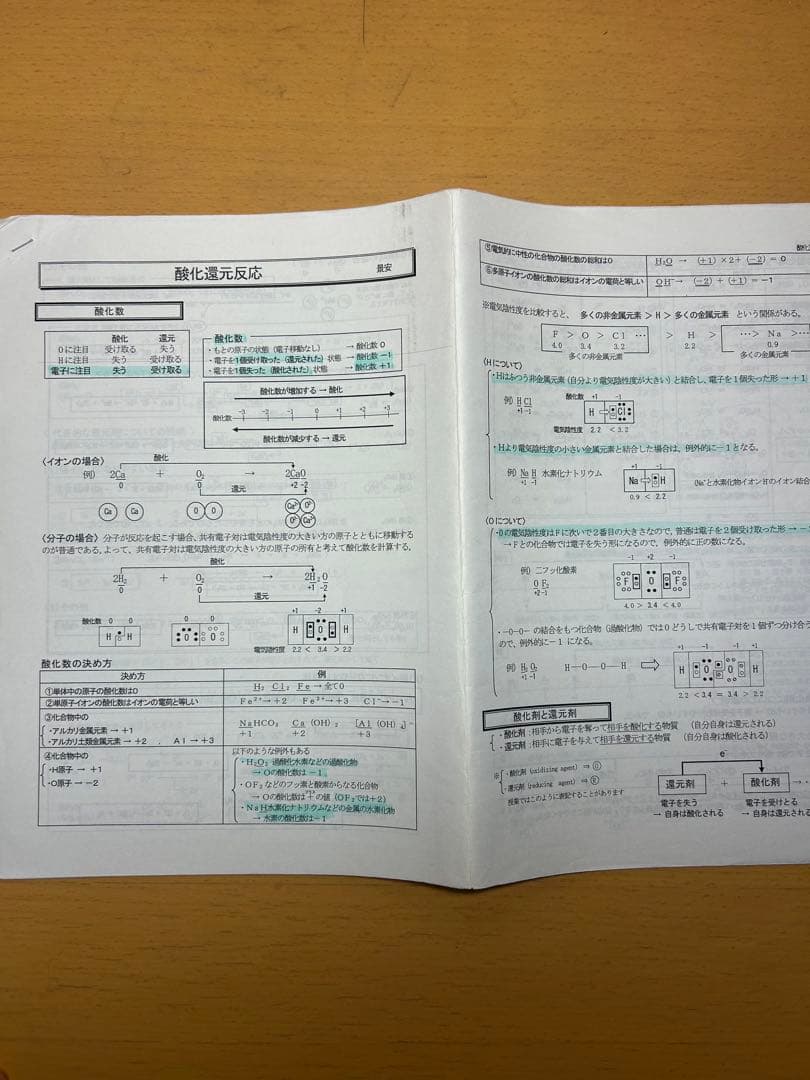 酸化還元反応 最安
酸化数
酸化 還元
Oに注目 受け取る 失う
Hに注目 失う 受け取る
電子に注目 失う 受け取る
酸化数
・もとの原子の状態(電子移動なし) → 酸化数 0
・電子を1個受け取った(還元された)状態 → 酸化数 −1
・電子を1個失った(酸化された)状態 → 酸化数 +1
酸化数が増加する → 酸化
酸化数 −3 −2 −1 0 +1 +2 +3
酸化数が減少する → 還元
〈イオンの場合〉 酸化
例) 2Ca + O₂ → 2CaO
0 0 +2 −2
還元
Ca Ca O O Ca²⁺ O²⁻ O²⁻ Ca²⁺
〈分子の場合〉分子が反応を起こす場合、共有電子対は電気陰性度の大きい方の原子とともに移動する
のが普通である。よって、共有電子対は電気陰性度の大きい方の原子の所有と考えて酸化数を計算する。
酸化
2H₂ + O₂ → 2H₂O
0 0 +1 −2
還元
酸化数 0 0 0 0 +1 −2 +1
H H O O H O H
電気陰性度 2.2 < 3.4 > 2.2
酸化数の決め方
決め方 例
①単体中の原子の酸化数は0 H₂ Cl₂ Fe → 全て0
②単原子イオンの酸化数はイオンの電荷と等しい Fe²⁺→+2 Fe³⁺→+3 Cl⁻→−1
③化合物中の
・アルカリ金属元素 → +1
・アルカリ土類金属元素 → +2 , Al → +3
NaHCO₃ Ca(OH)₂ [Al(OH)₄]⁻
+1 +2 +3
④化合物中の
・H原子 → +1
・O原子 → −2
以下のような例外もある
・H₂O₂ 過酸化水素などの過酸化物
→ Oの酸化数は −1
・OF₂ などのフッ素と酸素からなる化合物
→ Oの酸化数は+の値(OF₂では+2)
・NaH水素化ナトリウムなどの金属の水素化物
→ 水素の酸化数は−1
酸化
⑤電気的に中性の化合物の酸化数の総和は0 H₂O → (+1)×2+(−2)=0
⑥多原子イオンの酸化数の総和はイオンの電荷と等しい OH⁻→ (−2)+(+1)=−1
※電気陰性度を比較すると、 多くの非金属元素 > H > 多くの金属元素 という関係がある。
F > O > Cl … > H > …> Na >…
4.0 3.4 3.2 2.2 0.9
多くの非金属元素 多くの金属元素
〈Hについて〉
・Hはふつう非金属元素(自分より電気陰性度が大きい)と結合し、電子を1個失った形→ +1
例) HCl 酸化数 +1 −1
+1 −1 H Cl
電気陰性度 2.2 < 3.2
・Hより電気陰性度の小さい金属元素と結合した場合は、例外的に−1となる。
例) NaH 水素化ナトリウム +1 −1
+1 −1 Na H (Na⁺と水素化物イオンHのイオン結合
0.9 < 2.2
〈Oについて〉
・Oの電気陰性度はFに次いで2番目の大きさなので、普通は電子を2個受け取った形→ −
→ Fとの化合物では電子を失う形になるので、例外的に正の数になる。
例) 二フッ化酸素 −1 +2 −1
OF₂ F O F
+2 −1
4.0 > 3.4 < 4.0
・−O−O− の結合をもつ化合物(過酸化物)ではOどうしで共有電子対を1個ずつ分け合う
ので、例外的に−1 になる。
例) H₂O₂ H−O−O−H +1 −1 −1 +1
+1 −1 H O O H
2.2 < 3.4 = 3.4 > 2.2
酸化剤と還元剤
・酸化剤:相手から電子を奪って相手を酸化する物質 (自分自身は還元される)
・還元剤:相手に電子を与えて相手を還元する物質 (自分自身は酸化される)
※ ・酸化剤(oxidizing agent) ⇒ Ⓞ
・還元剤(reducing agent) ⇒ Ⓡ
授業ではこのように表記することがあります
e⁻
還元剤 + 酸化剤 →
電子を失う 電子を受けとる
→ 自身は酸化される → 自身は還元される